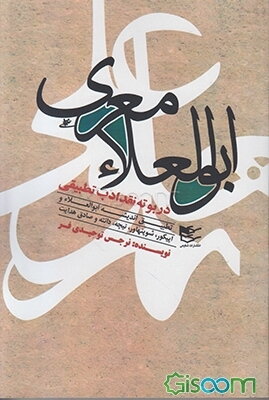 ابوالعلاء معری
در بوته نقد ادب تطبیقی
تطبیق اندیشه ابوالعلاء و
اپیکور، شوپنهاور، نیچه، دانته و صادق هدایت
نویسنده: نرجس توحیدی فر
Gisoom.com